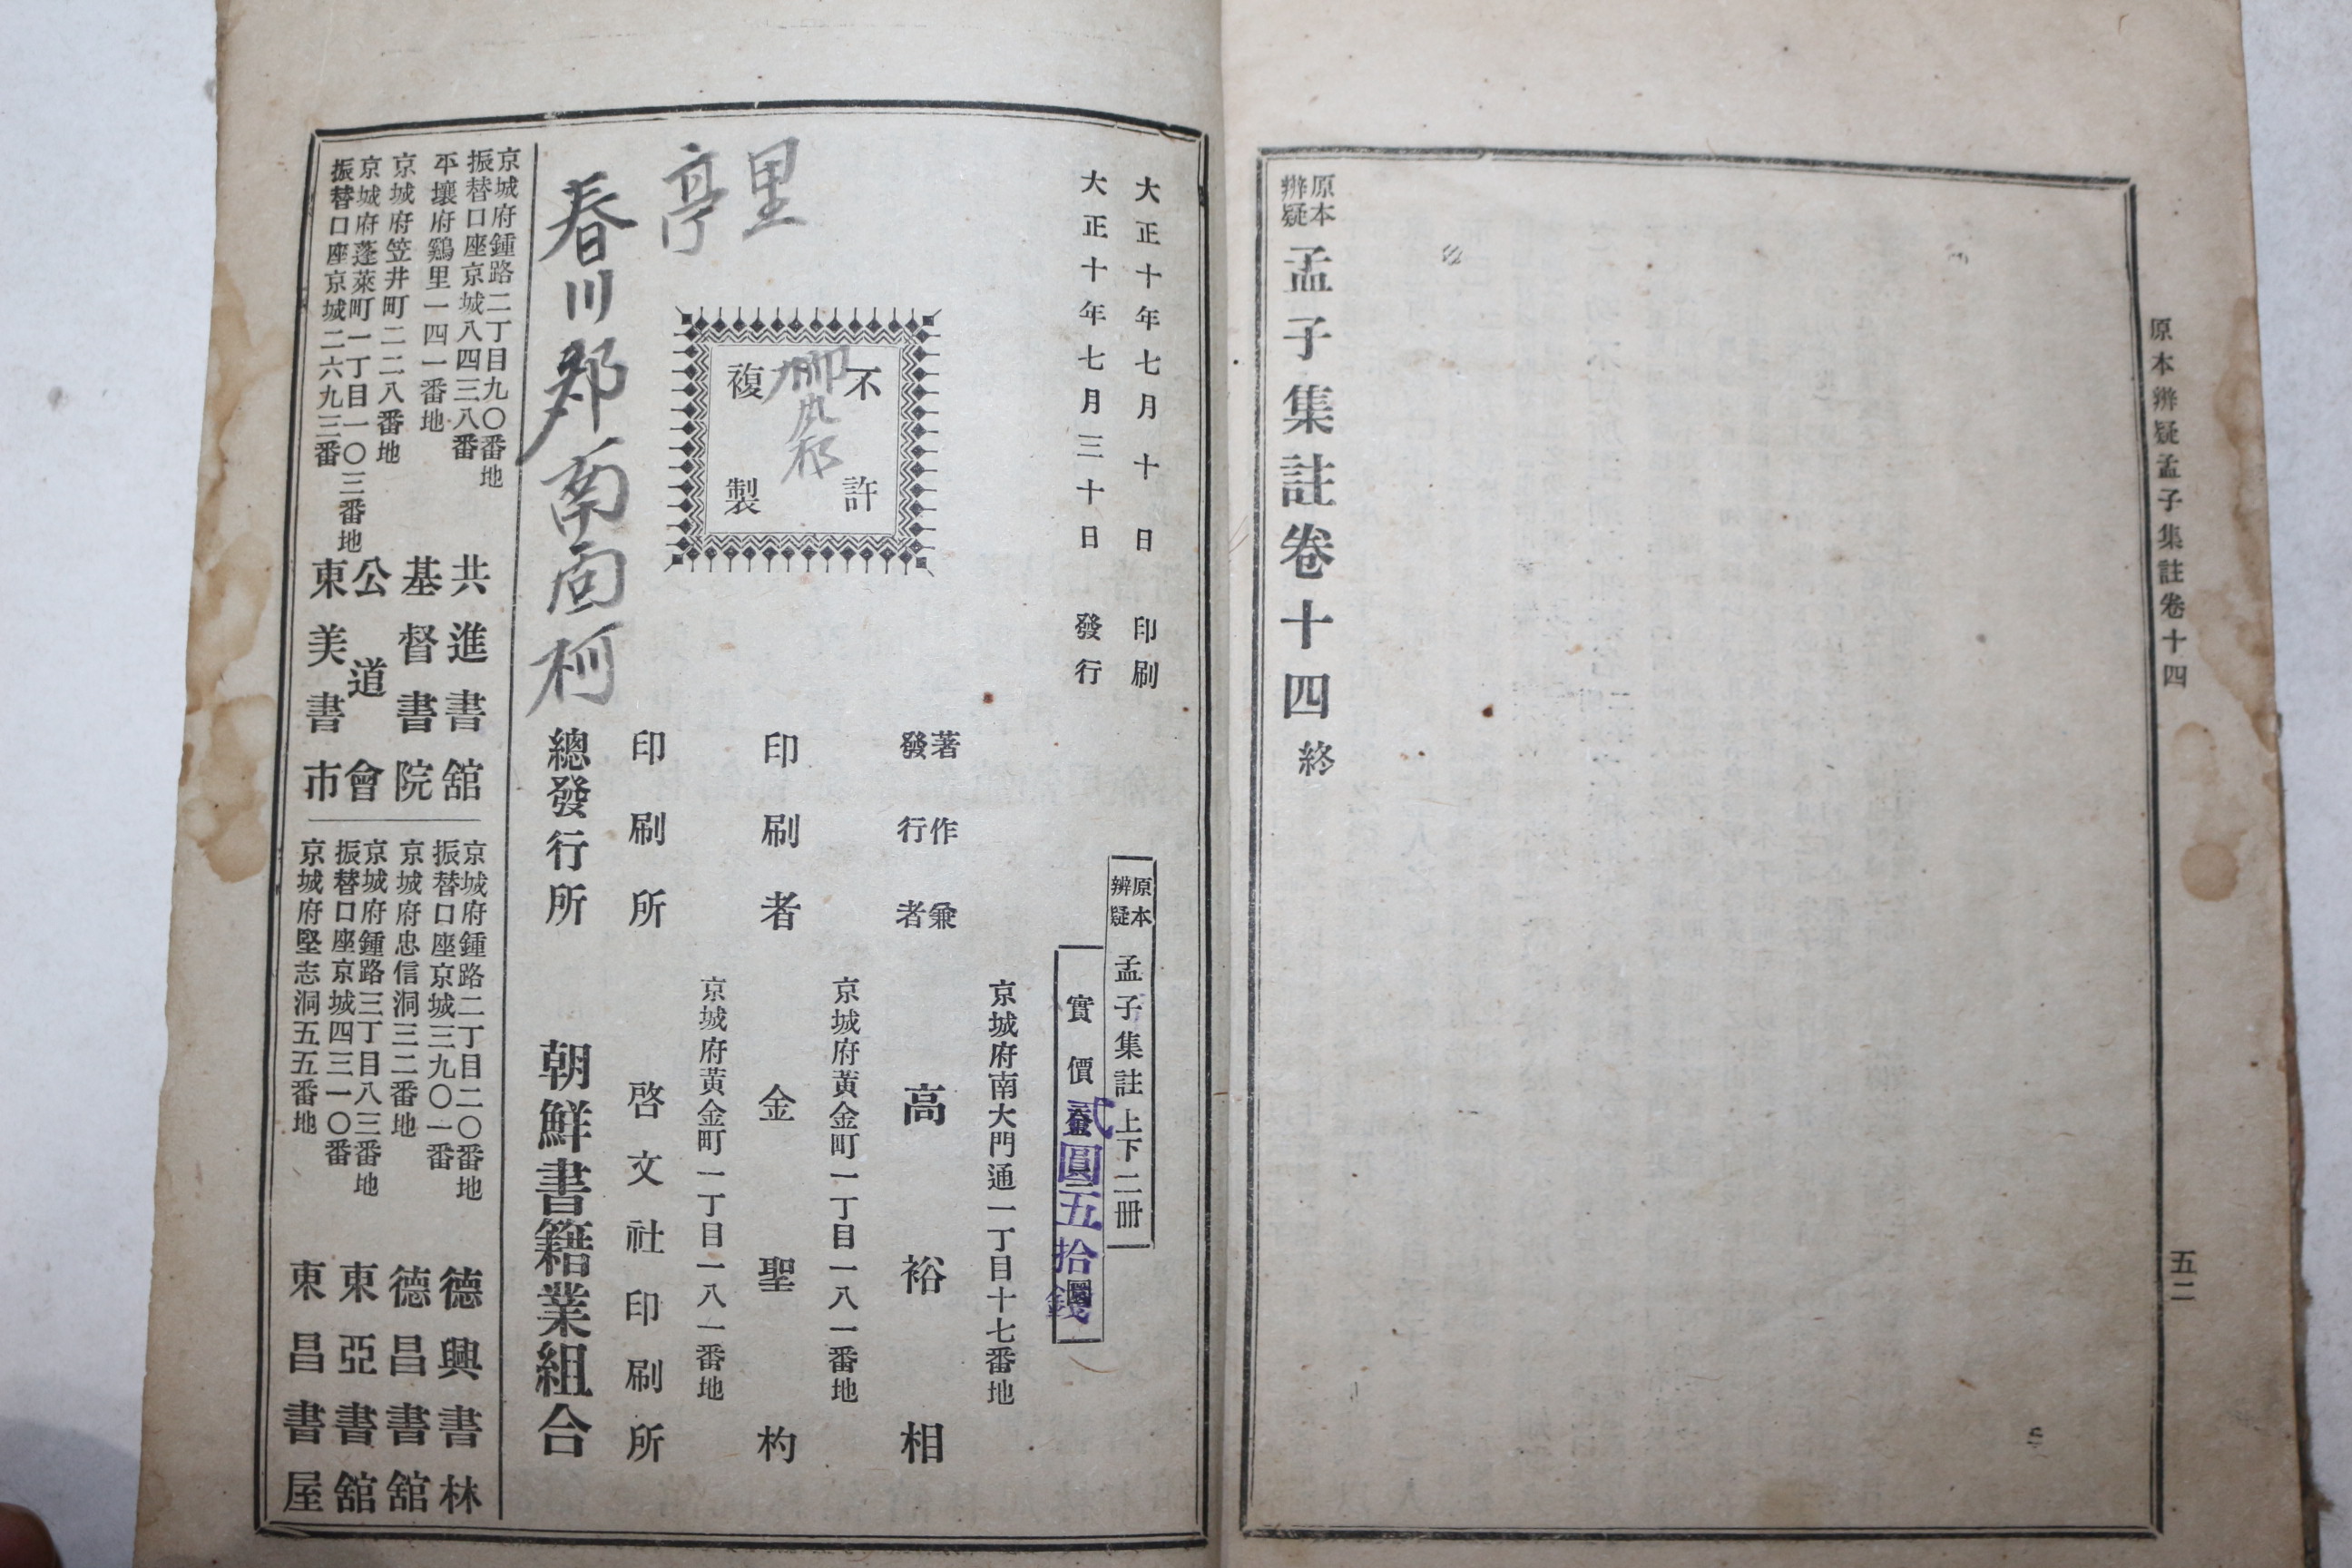 原本辨疑孟子集註卷十四
五二
原本辨疑 孟子集註卷十四 終
大正十年七月十日 印刷
大正十年七月三十日 發行
原本辨疑 孟子集註 上下二冊
實價金
貳圓五拾錢
不許
複製
京城府南大門通一丁目十七番地
著作兼發行者 高裕相
京城府黃金町一丁目一八一番地
印刷者 金聖杓
京城府黃金町一丁目一八一番地
印刷所 啓文社印刷所
總發行所 朝鮮書籍業組合
里
亭
春川郡南面柯
京城府鍾路二丁目九〇番地
振替口座京城八四三八番
共進書舘
平壤府鷄里一四一番地
基督書院
京城府笠井町二二八番地
公道會
京城府蓬萊町一丁目一〇三番地
振替口座京城二六九三番
東美書市
京城府鍾路二丁目二〇番地
振替口座京城三九〇一番
德興書林
京城府忠信洞三二番地
德昌書舘
京城府鍾路三丁目八三番地
振替口座京城四三一〇番
東亞書舘
京城府堅志洞五五番地
東昌書屋